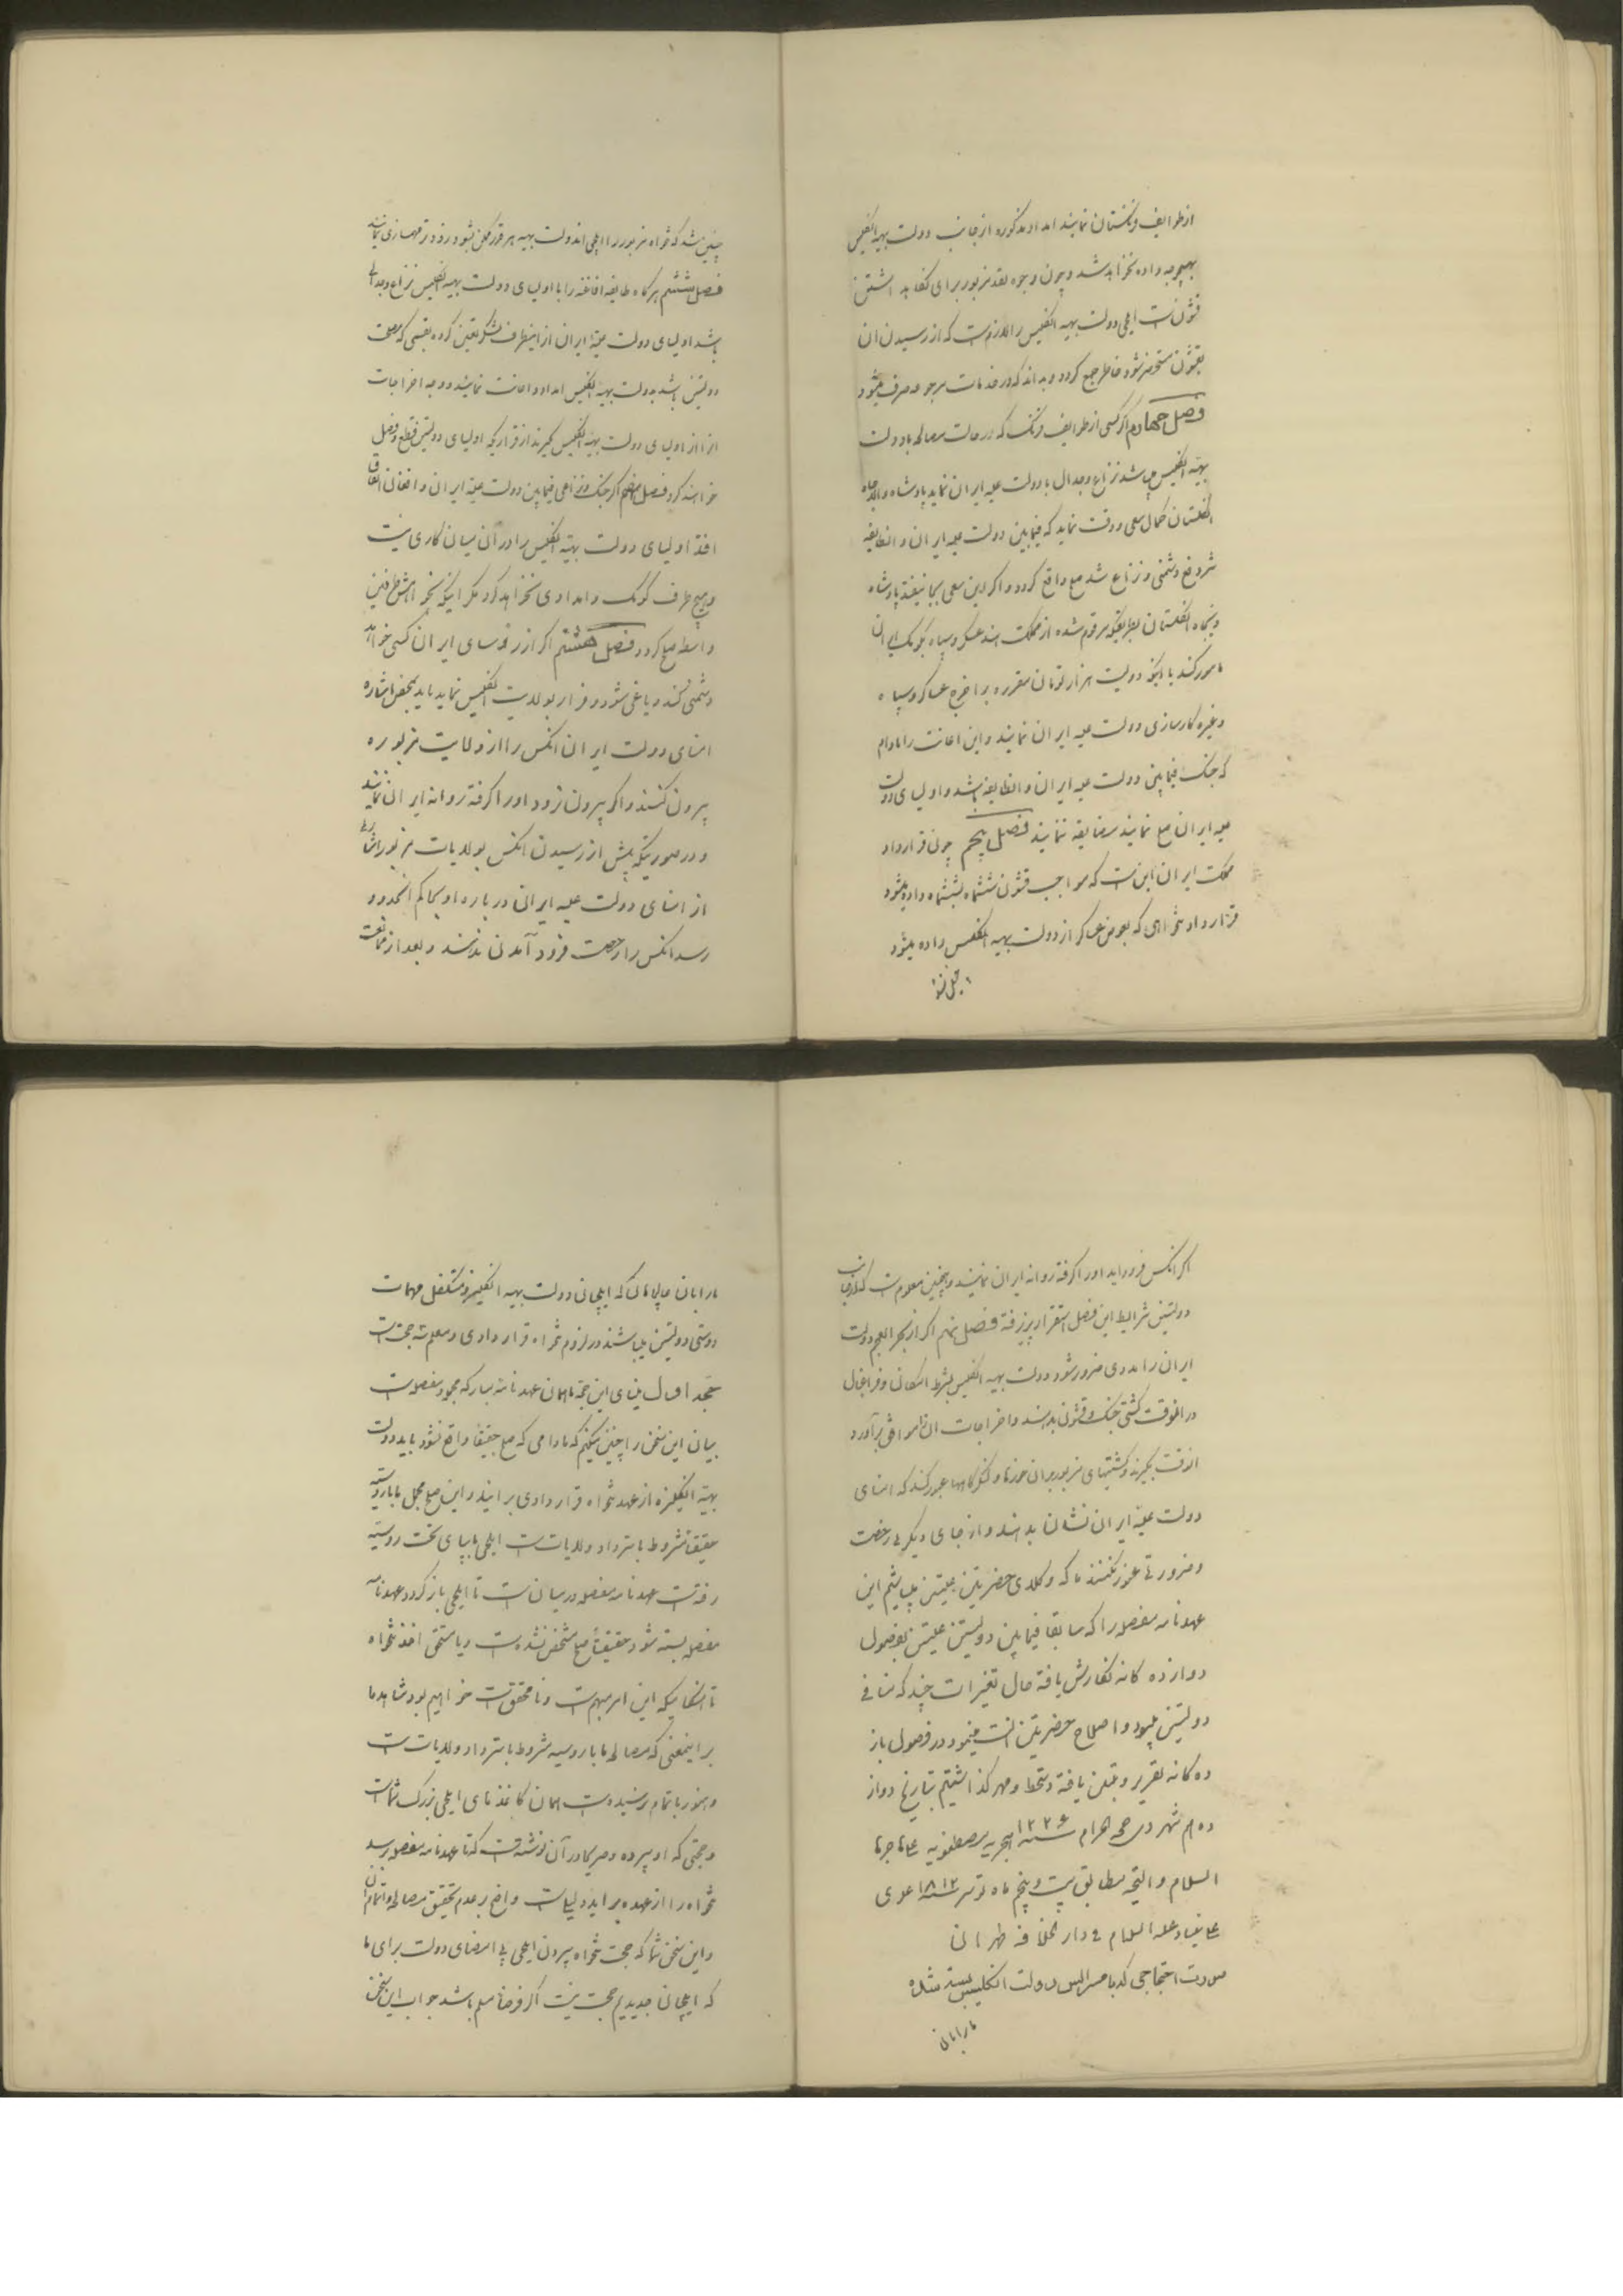 از طوایف فرنگستان نمایند امداد مذکوره از جانب دولت بهیه انگلیس
بهیچوجه داده نخواهد شد و چون وجوه نقد مزبور برای نگاه داشتن
قشون است ایلچی دولت بهیه انگلیس را لازم است که از رسیدن آن
بقشون مستحضر شود خاطر جمع گردد و بداند که در خدمات مرجوعه صرف میشود
فصل چهارم اگر کسی از طوایف فرنگ که در حالت مصالحه با دولت
بهیه انگلیس میباشند نزاع و جدال با دولت علیه ایران نماید پادشاه والاجاه
انگلستان کمال سعی و دقت نماید که فیمابین دولت علیه ایران و انطایفه
شر و رفع دشمنی و نزاع شده صلح واقع گردد و اگر این سعی بجا نیفتد پادشاه
ذیجاه انگلستان بطریقیکه مرقوم شده از مملکت هند عسکر و سپاه بکومک ایران
مامور کند یا اینکه دویست هزار تومان مقرره برا خرج عساکر و سپاه
و غیره کارسازی دولت علیه ایران نمایند و این اعانت را مادام
که جنگ فیمابین دولت علیه ایران و انطایفه باشد و اولیای دولت
علیه ایران صلح نمایند مضایقه ننمایند فصل پنجم چون قرارداد
مملکت ایران این است که مواجب قشون ششماه بششماه داده میشود
قرارداد تنخواهی که بعوض عساکر از دولت بهیه انگلیس داده میشود
چنین شد که تنخواه مزبور را ایلچی اندولت بهیه هر قدر ممکن بشود زود تر مهمسازی نمایند
فصل ششم هرگاه طایفه افاغنه را با اولیای دولت بهیه انگلیس نزاع و جدالی
باشد اولیای دولت علیه ایران از اینطرف لشکر تعیین کرده بقسمی که مصلحت
دولتین باشد بدولت بهیه انگلیس امداد و اعانت نمایند و وجه اخراجات
انرا از اولیای دولت بهیه انگلیس گیرند از قراریکه اولیای دولتین قطع و فصل
خواهند کرد فصل هفتم اگر جنگ و نزاعی فیمابین دولت علیه ایران و افغان اتفاق
افتد اولیای دولت بهیه انگلیس را در آن میان کاری نیست
و بهیچ طرف کومک و امدادی نخواهد کرد مگر اینکه بخواهش طرفین
واسطه صلح گردد فصل هشتم اگر از رؤسای ایران کسی خواهد
دشمنی کند و یاغی شود و فرار بولایت انگلیس نماید باید بمحض اشاره
امنای دولت ایران انکس را از ولایت مزبوره
بیرون کنند و اگر بیرون نرود او را گرفته روانه ایران نمایند
و در صورتیکه پیش از رسیدن انکس بولایات مزبور اشاره
از امنای دولت علیه ایران در باره او بحاکم انحدود
رسد انکس را رخصت فرود آمدن ندهند و بعد از ممانعت
اگر انکس فرود اید او را گرفته روانه ایران نمایند و همچنین معلوم است که از جانب
دولتین شرایط این فصل استقرار پذیرفته فصل نهم اگر از بحر العجم دولت
ایران را مددی ضرور شود دولت بهیه انگلیس بشرط امکان و فراغبال
در انوقت کشتی جنگ و قشون بدهند و اخراجات انرا موافق برآورد
انوقت بگیرند و کشتیهای مزبور بران خورها و لنگرگاهها عبور کند که امنای
دولت علیه ایران نشان بدهند و از جای دیگر بی رخصت
و ضرورتی عبور نکنند ما که وکلای حضرتین علیتین میباشیم این
عهدنامه مفصله را که سابقا فیمابین دولتین علیتین بفصول
دوازده کانه نگارش یافته حال تغییرات چند که منافی
دولتین نبود و اصلاح حضرتین انسب مینمود در فصول یاز
ده کانه تقریر و تبیین یافته دستخط و مهر گذاشتیم بتاریخ دواز
دهم شهر ذی حجه الحرام سنه ۱۲۲۶ هجریه مصطفویه علی هاجرها
السلام و التحیه مطابق بیست و پنجم ماه سنه ۱۸۱۲ عیسوی
علی نبینا و علیه السلام فی دار الخلافه طهران
صورت احتجاجی که با مسر الیس دولت انگلیس بسته شده
ما را بان
ما را بان عالیجاهان که ایلچیان دولت بهیه انگلیز و متکفل مهمات
دوستی دولتین میباشند در لزوم تنخواه قراردادی و معلومه حجت است
بیان این سخن را چنین میکنیم که مادامی که صلح حقیقتا واقع نشود باید دولت
بهیه انگلیزه از عهد تنخواه قراردادی براید و این صلح مجمل ما با روسیه
حقیقتا مشروط باسترداد ولایات است ایلچی ما بپای تخت روسیه
رفته است عهدنامه مفصله در میان است تا ایلچی باز گردد و عهدنامه
مفصله بسته شود حقیقتا صلح مشخص نشده است و ما مستحق اخذ تنخواه
تا انکاییکه این امر مبهم است و نامحقق است خواهیم بود شاهد ما
بر اینمعنی که مصالحه ما با روسیه مشروط باسترداد ولایات است
و هنوز باتمام نرسیده است همان کاغذهای ایلچی بزرگ شماست
و حجتی که او سپرده و صریحا در آن نوشته است که تا عهدنامه مفصله برسد
تنخواه را از عهده براید دلیلیست واضح بر عدم تحقیق مصالحه و اتمام ان
و این سخن شما که حجت تنخواه بیرون ایلچی بی امضای دولت برای ما
که ایلچیان جدیدیم حجت نیست اگر فرضا مسلم باشد جواب این سخن